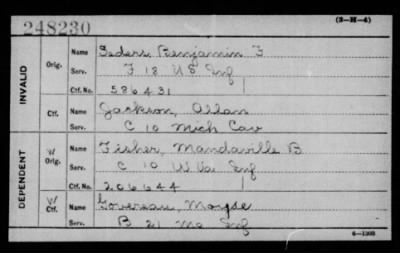 248230
(3-H-4)
INVALID
Orig.
Name Seders, Benjamin F
Serv. F 18 US Inf
Ctf. No. 586431
Ctf.
Name Jackson, Allan
Serv. C 10 Mich Cav
DEPENDENT
W/ Orig.
Name Fisher, Mandaville B
Serv. C 10 W Va Inf
Ctf. No. 206644
W/ Ctf.
Name Govereau, Moyse
Serv. B 21 Mo Inf